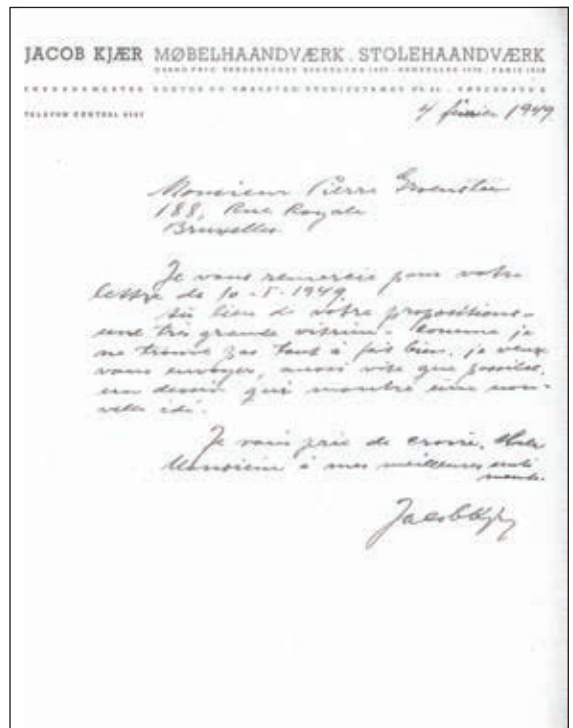 JACOB KJÆR MØBELHAANDVÆRK . STOLEHAANDVÆRK
TELEFON CENTRAL
4 février 1949
Monsieur Pierre
188, Rue Royale
Bruxelles
Je vous remercie pour votre
lettre de 10-I-1949.
lieu de votre propositions -
une très grande vitrine - comme je
ne trouve pas tout à fait bien, je veux
vous envoyer, aussi vite que possible,
un dessin qui montre une nou-
velle idé.
Je vous prie de croire,
Monsieur à mes meilleures senti
ments.
Jacob Kjær